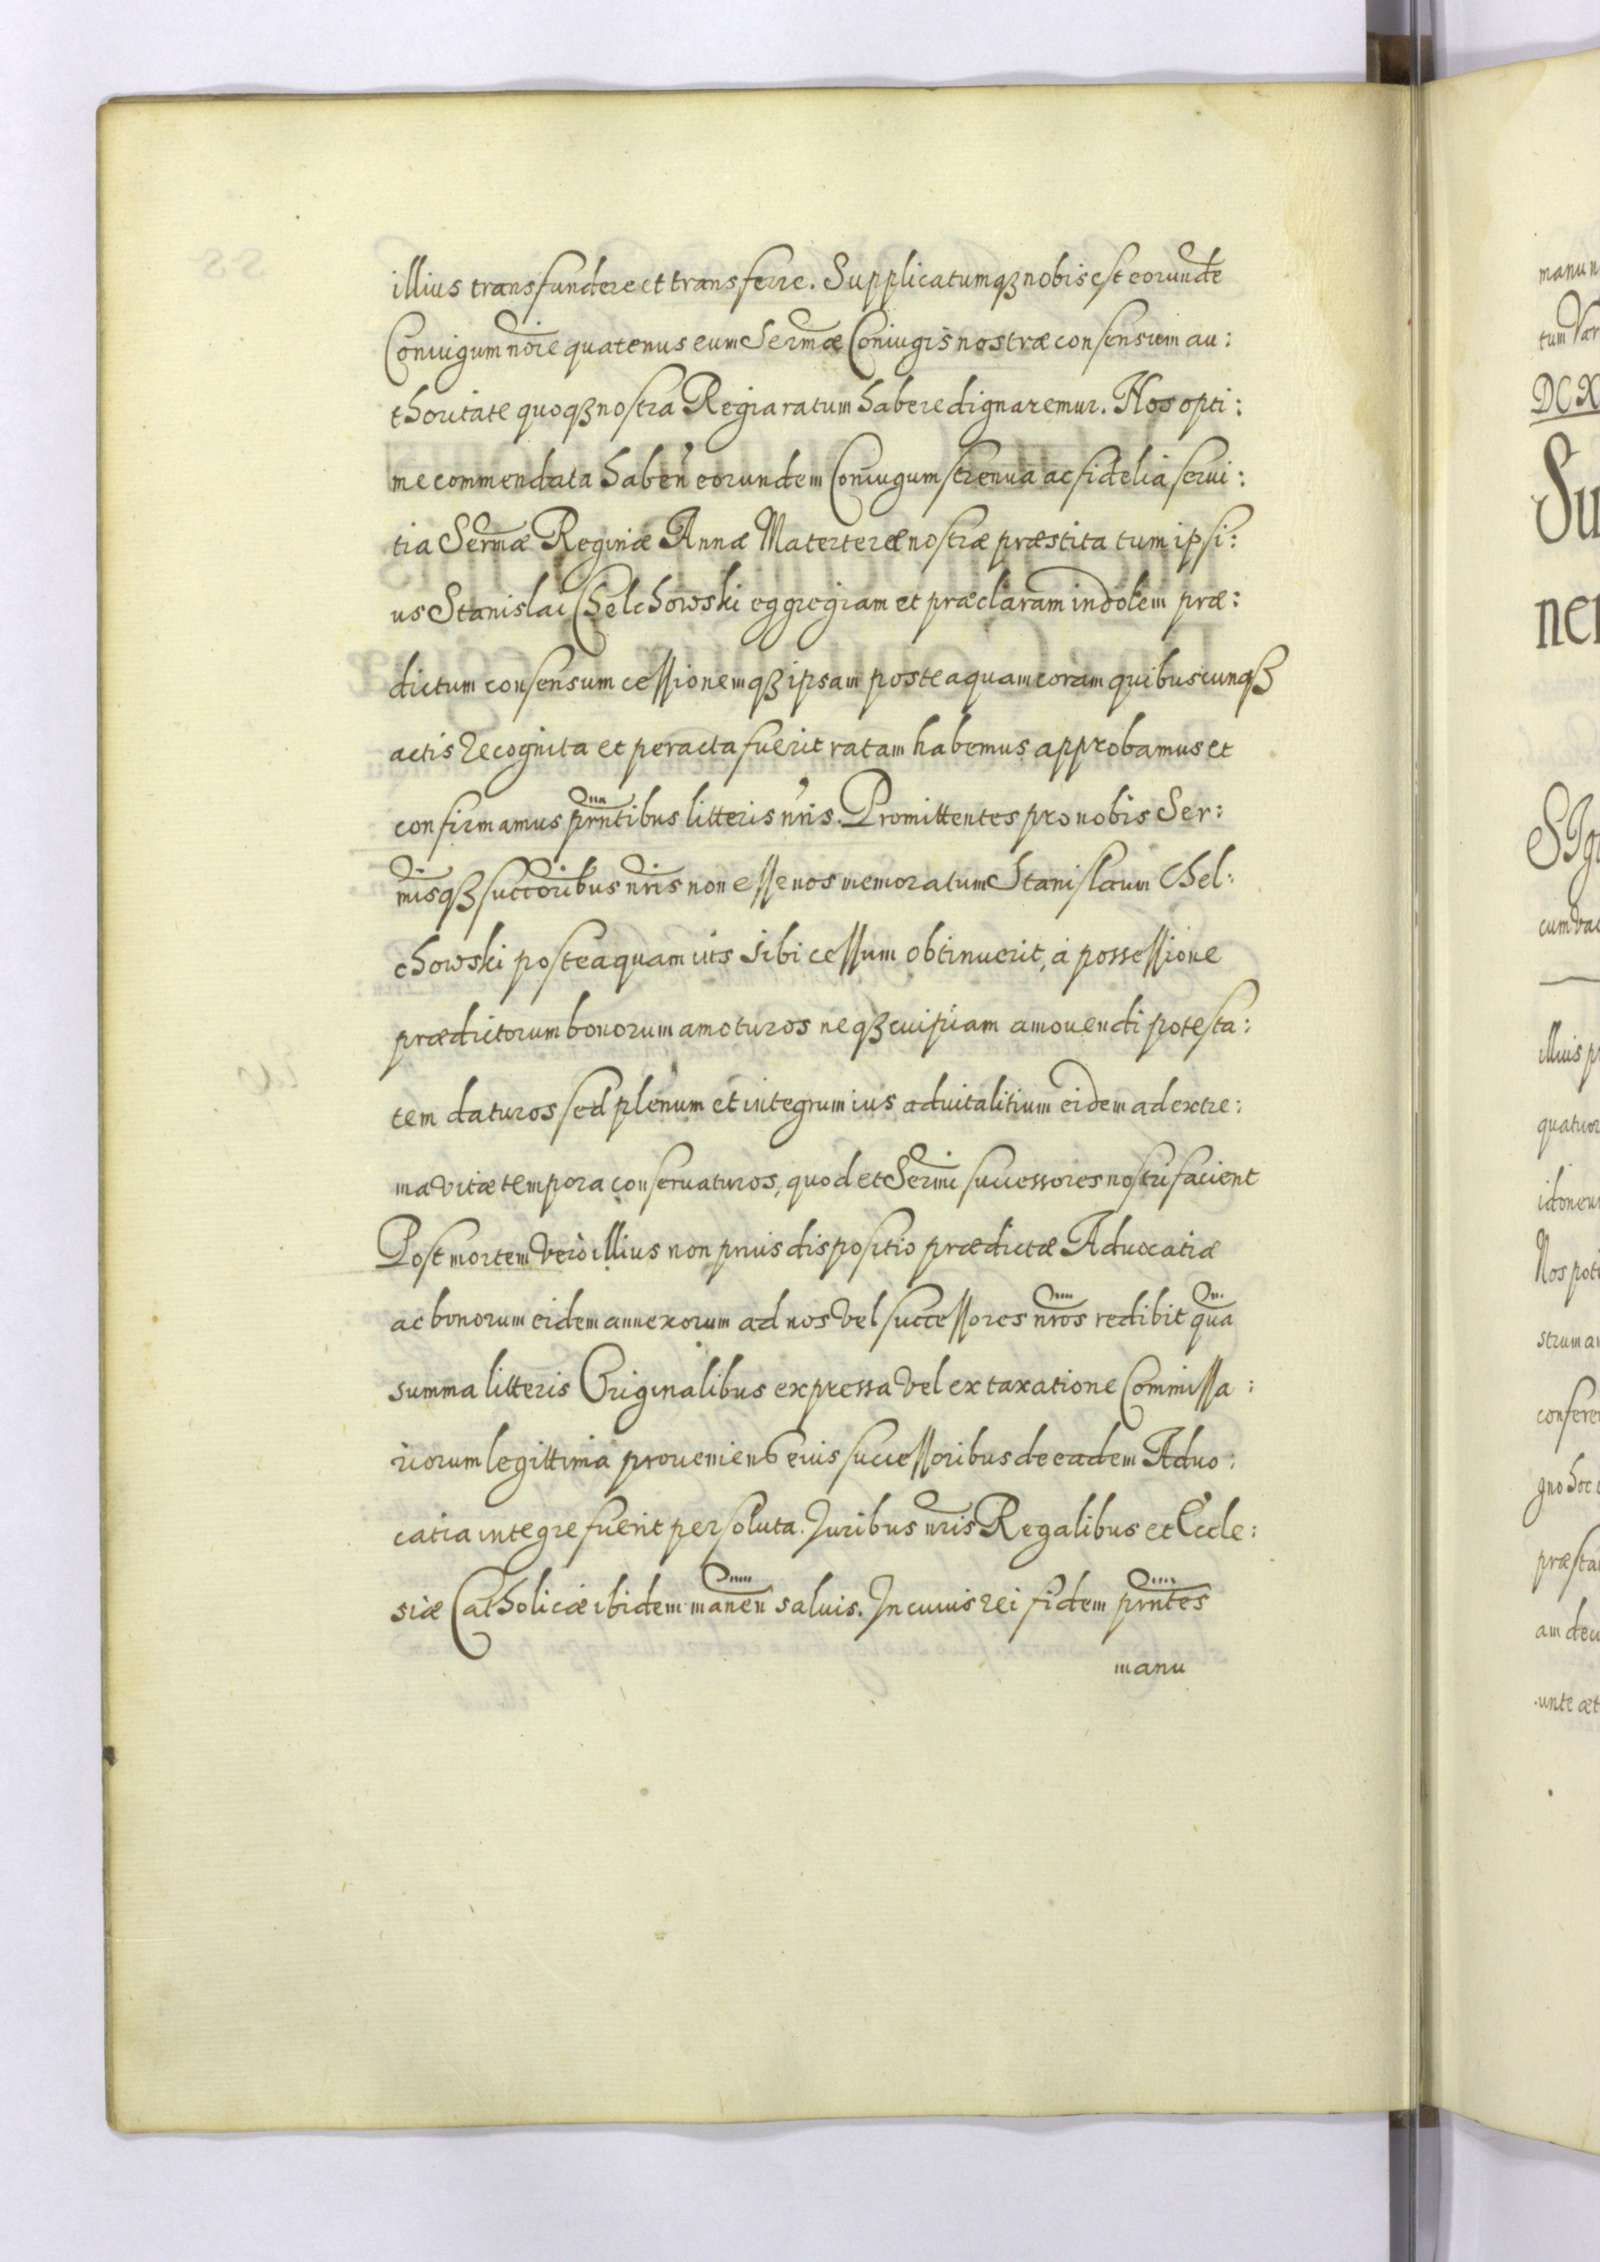 illius transfundere et transferre. Supplicatumqꝫ nobis est eorunde
Coniugum nõie quatenus eum Sermæ Coniugis nostræ consensum au:
thoritate quoqꝫ nostra Regia ratum habere dignaremur. Nos opti:
me commendata haben̄ eorundem Coniugum strenua ac fidelia serui:
tia Sermæ Reginæ Annæ Materteræ nostræ præstita tum ipsi:
us Stanislai Chelchowski eggregiam et præclaram indolem præ:
dictum consensum cessionemqꝫ ipsam posteaquam coram quibuscunqꝫ
actis recognita et peracta fuerit ratam habemus approbamus et
confirmamus prntibus litteris nris. Promittentes pro nobis Ser:
misqꝫ succoribus nris non esse nos memoratum Stanislaum Chel:
chowski posteaquam ius sibi cessum obtinuerit, a possessione
prædictorum bonorum amoturos neqꝫ cuipiam amouendi potesta:
tem daturos sed plenum et integrum ius aduitalitium eidem ad extre:
ma vitæ tempora conseruaturos, quod et Sermi successores nostri facient
Post mortem vero illius non prius dispositio prædictæ Aduocatiæ
ac bonorum eidem annexorum ad nos vel successores nros redibit qua
summa litteris Originalibus expressa vel ex taxatione Commissa:
riorum legittima proueniens eius successoribus de eadem Aduo:
catia integre fuerit persoluta. Juribus nris Regalibus et Eccle:
siæ Catholicæ ibidem manen̄ saluis. In cuius rei fidem prntes
manu